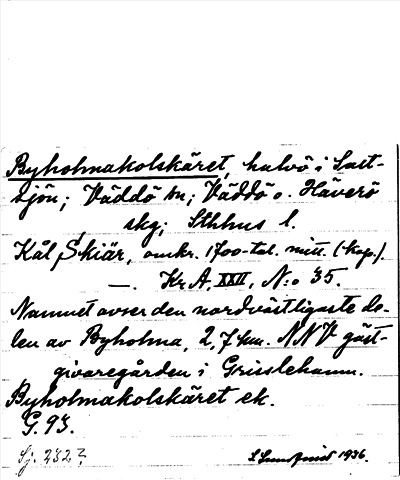 Byholmakolskäret, halvö i Salt-
sjön; Väddö sn; Väddö o. Häverö
skg; Sthlms l.
Kål Skiär, omkr. 1700-tal. mitt. (kop.).
—. Kr A. XXII, N:o 35.
Namnet avser den nordvästligaste de-
len av Byholma, 2,7 km. NNV gäst-
givaregården i Grisslehamn.
Byholmakolskäret ek.
G. 93.
Sj. 232?
1936.